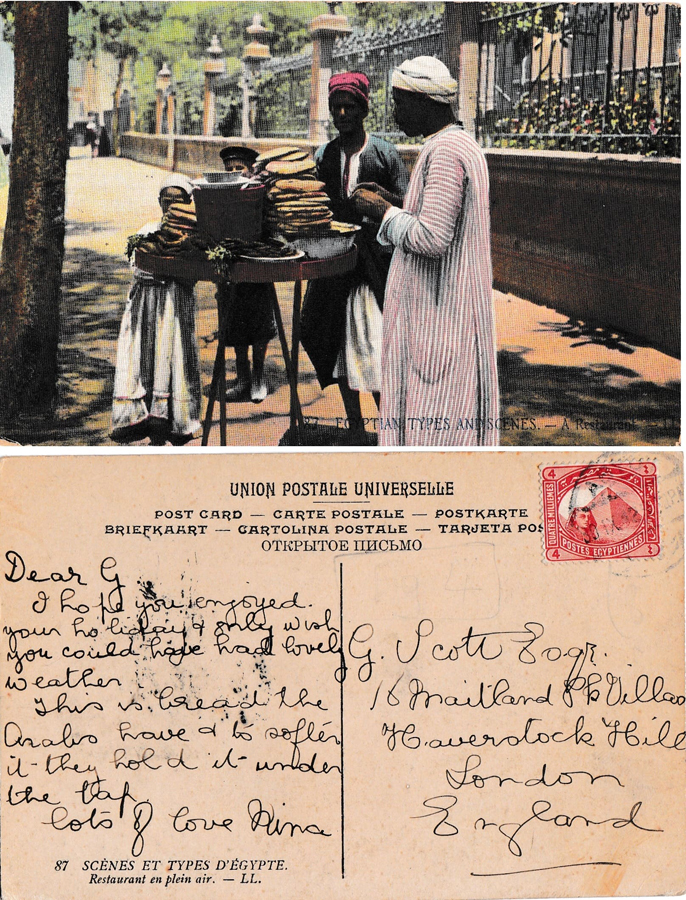 87. EGYPTIAN TYPES AND SCENES. — A Restaurant. — LL
UNION POSTALE UNIVERSELLE
POST CARD — CARTE POSTALE — POSTKARTE
BRIEFKAART — CARTOLINA POSTALE — TARJETA POS
ОТКРЫТОЕ ПИСЬМО
4 4
QUATRE MILLIEMES
POSTES EGYPTIENNES
4 4
Dear G
I hope you enjoyed.
your holiday & only wish
you could have had lovely
weather
This is bread the
Arabs have & to soften
it they hold it under
the tap
lots of love Nina
G. Scott Esqr.
18 Maitland Pk Villas
Haverstock Hill
London
England
87 SCÈNES ET TYPES D'ÉGYPTE.
Restaurant en plein air. — LL.